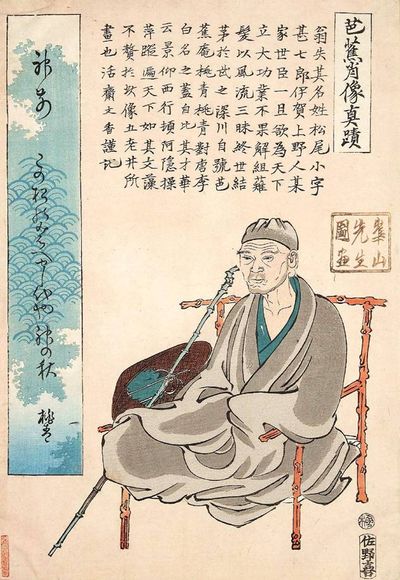 芭蕉肖像真蹟
翁失其名姓松尾小字
甚七郎伊賀上野人某
家世臣一旦欲為天下
立大功業不果解組薙
髪以風流三昧終世結
茅於武之深川自號芭
蕉庵桃青桃青對唐李
白名之蓋自比其才華
云景仰西行頓阿隠操
萍蹤遍天下如其文藻
不贅於玆像五老井所
畫也活齋文香謹記
崋山
先生
圖画
神前
代や神の秋
桃青
佐野喜